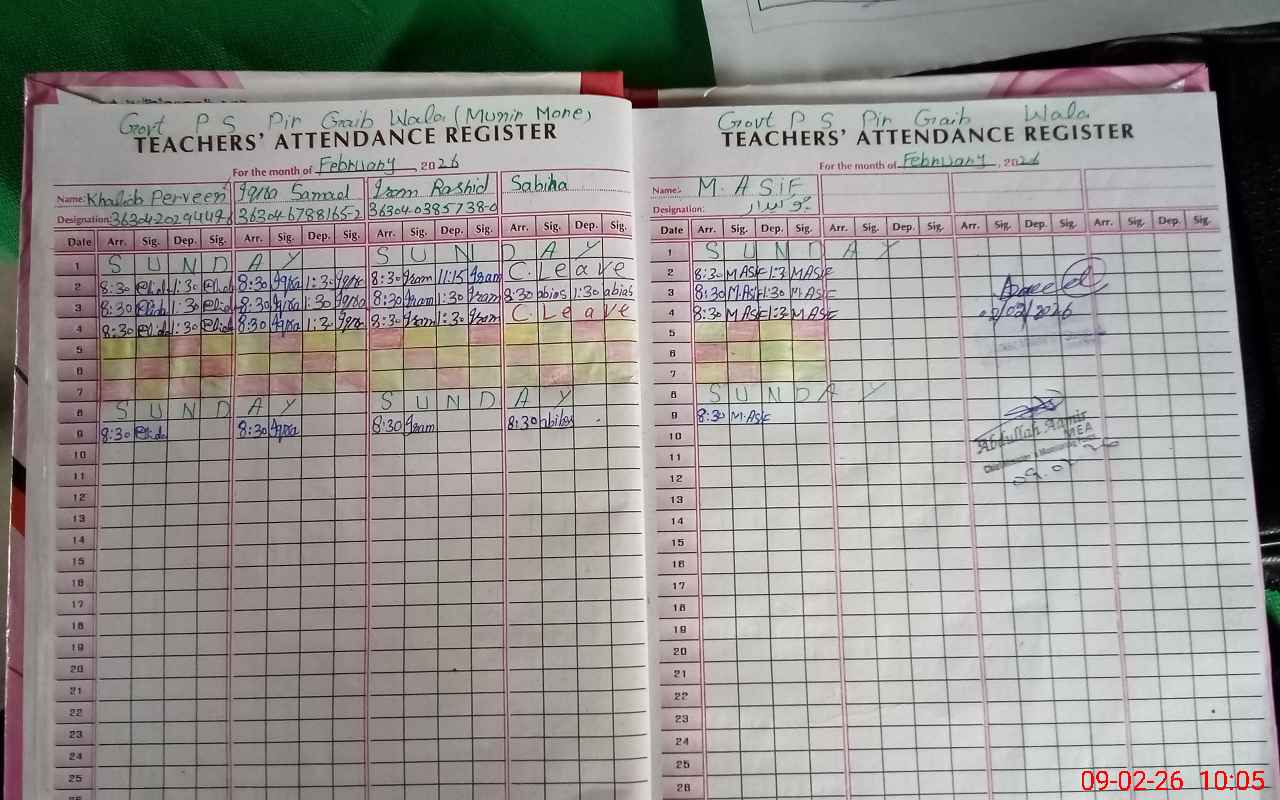 Govt P S Pir Gaib Wala (Munir Mone)
TEACHERS' ATTENDANCE REGISTER
For the month of February, 2026
Name: Khalida Perveen Iqra Samad Iram Rashid Sabiha
Designation: 36304-6788165-2 36304-0385738-0
Date Arr. Sig. Dep. Sig. Arr. Sig. Dep. Sig. Arr. Sig. Dep. Sig. Arr. Sig. Dep. Sig.
1 S U N D A Y S U N D A Y
2 8:30 1:30 8:30 Iqra 1:30 Iqra 8:30 Iram 11:15 Iram C. Leave
3 8:30 1:30 8:30 Iqra 1:30 Iqra 8:30 Iram 1:30 Iram 8:30 1:30
4 8:30 1:30 8:30 Iqra 1:30 Iqra 8:30 Iram 1:30 Iram C. Leave
5
6
7
8 S U N D A Y S U N D A Y
9 8:30 8:30 Iqra 8:30 Iram 8:30
10
11
12
13
14
15
16
17
18
19
20
21
22
23
24
25
Govt P S Pir Gaib Wala
TEACHERS' ATTENDANCE REGISTER
For the month of February, 2026
Name: M. ASiF
Designation: چوکیدار
Date Arr. Sig. Dep. Sig. Arr. Sig. Dep. Sig. Arr. Sig. Dep. Sig. Arr. Sig. Dep. Sig.
1 S U N D A Y
2 8:30 M.ASiF 1:3 M.ASiF
3 8:30 M.ASiF 1:30 M.ASiF
4 8:30 M.ASiF 1:3 M.ASiF
02/02/2026
5
6
7
8 S U N D A Y
9 8:30 M.ASiF
10
Abdullah Aamir
MEA
11
12
09.02.26
13
14
15
16
17
18
19
20
21
22
23
24
25
26
09-02-26 10:05